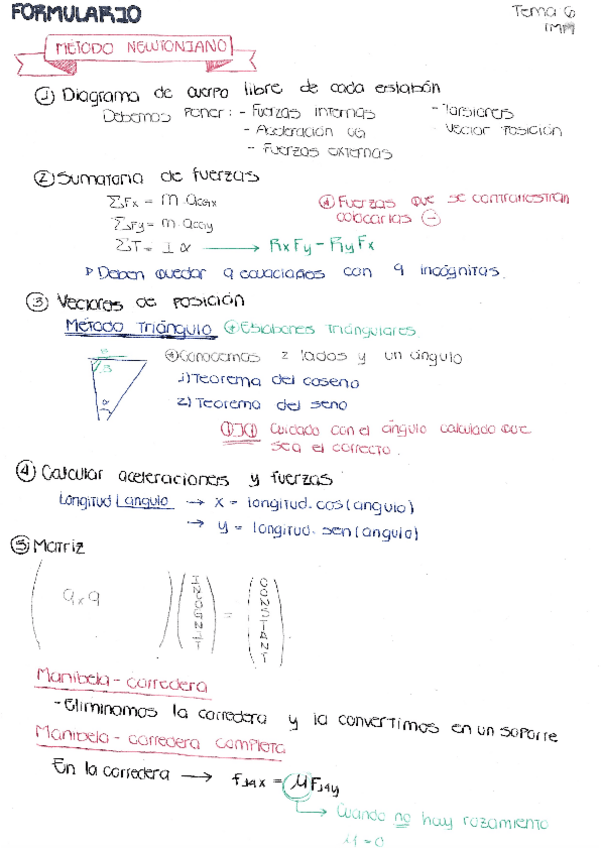 FORMULARIO
Tema 6
IMM
MÉTODO NEWTONIANO
① Diagrama de cuerpo libre de cada eslabón
Debemos poner: - Fuerzas internas - Torsiones
- Aceleración CG - Vector posición
- Fuerzas externas
② Sumatoria de fuerzas
ΣFx = m·aCGx
ΣFy = m·aCGy
ΣT = I α → RxFy - RyFx
Fuerzas que se contrarrestran
colocarlas ⊖
Deben quedar 9 ecuaciones con 9 incógnitas.
③ Vectores de posición
Método Triángulo Eslabones triángulares
Conocemos 2 lados y un ángulo
1) Teorema del coseno
2) Teorema del seno
Cuidado con el ángulo calculado que
sea el correcto.
④ Calcular aceleraciones y fuerzas
Longitud angulo → x = longitud.cos(angulo)
→ y = longitud.sen(angulo)
⑤ Matriz
9x9
=
Manibela - corredera
- Eliminamos la corredera y la convertimos en un soporte
Manibela - corredera completa
En la corredera → F14x = μF14y
Cuando no hay rozamiento
μ=0